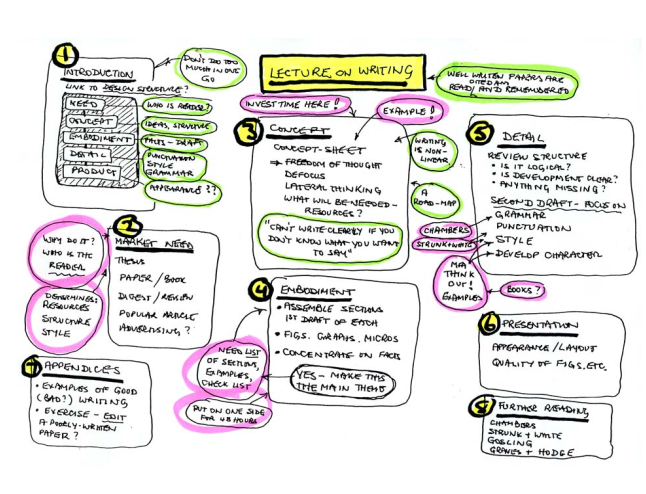 LECTURE ON WRITING
WELL WRITTEN PAPERS ARE
CITED AND
READ, AND REMEMBERED
1
INTRODUCTION
LINK TO DESIGN STRUCTURE?
NEED
CONCEPT
EMBODIMENT
DETAIL
PRODUCT
DON'T DO TOO
MUCH IN ONE
GO
WHO IS READER?
IDEAS, STRUCTURE
FACTS - DRAFT
PUNCTUATION
STYLE
GRAMMAR
APPEARANCE??
2
MARKET NEED
THESIS
PAPER / BOOK
DIGEST / REVIEW
POPULAR ARTICLE
ADVERTISING?
WHY DO IT?
WHO IS THE
READER
DETERMINES:
RESOURCES
STRUCTURE
STYLE
INVEST TIME HERE!!
EXAMPLE!
3
CONCEPT
CONCEPT-SHEET
→ FREEDOM OF THOUGHT
DEFOCUS
LATERAL THINKING
WHAT WILL BE NEEDED -
RESOURCES?
"CAN'T WRITE CLEARLY IF YOU
DON'T KNOW WHAT YOU WANT
TO SAY"
WRITING
IS NON-
LINEAR.
A
ROAD-MAP
4
EMBODIMENT
• ASSEMBLE SECTIONS
1ST DRAFT OF EACH
• FIGS. GRAPHS, MICROS
• CONCENTRATE ON FACTS
YES - MAKE THIS
THE MAIN THEME
NEED LIST
OF SECTIONS,
EXAMPLES,
CHECK LIST
PUT ON ONE SIDE
FOR 48 HOURS
5
DETAIL
REVIEW STRUCTURE
• IS IT LOGICAL?
• IS DEVELOPMENT CLEAR?
• ANYTHING MISSING?
SECOND DRAFT - FOCUS ON
GRAMMAR
PUNCTUATION
STYLE
DEVELOP CHARACTER
CHAMBERS
STRUNK + WHITE
THINK
OUT!
EXAMPLES
BOOKS?
6
PRESENTATION
APPEARANCE / LAYOUT
QUALITY OF FIGS, ETC.
7
APPENDICES
• EXAMPLES OF GOOD
(BAD?) WRITING
• EXERCISE - EDIT
A POORLY-WRITTEN
PAPER?
8
FURTHER READING
CHAMBERS
STRUNK + WHITE
GRAVES + HODGE